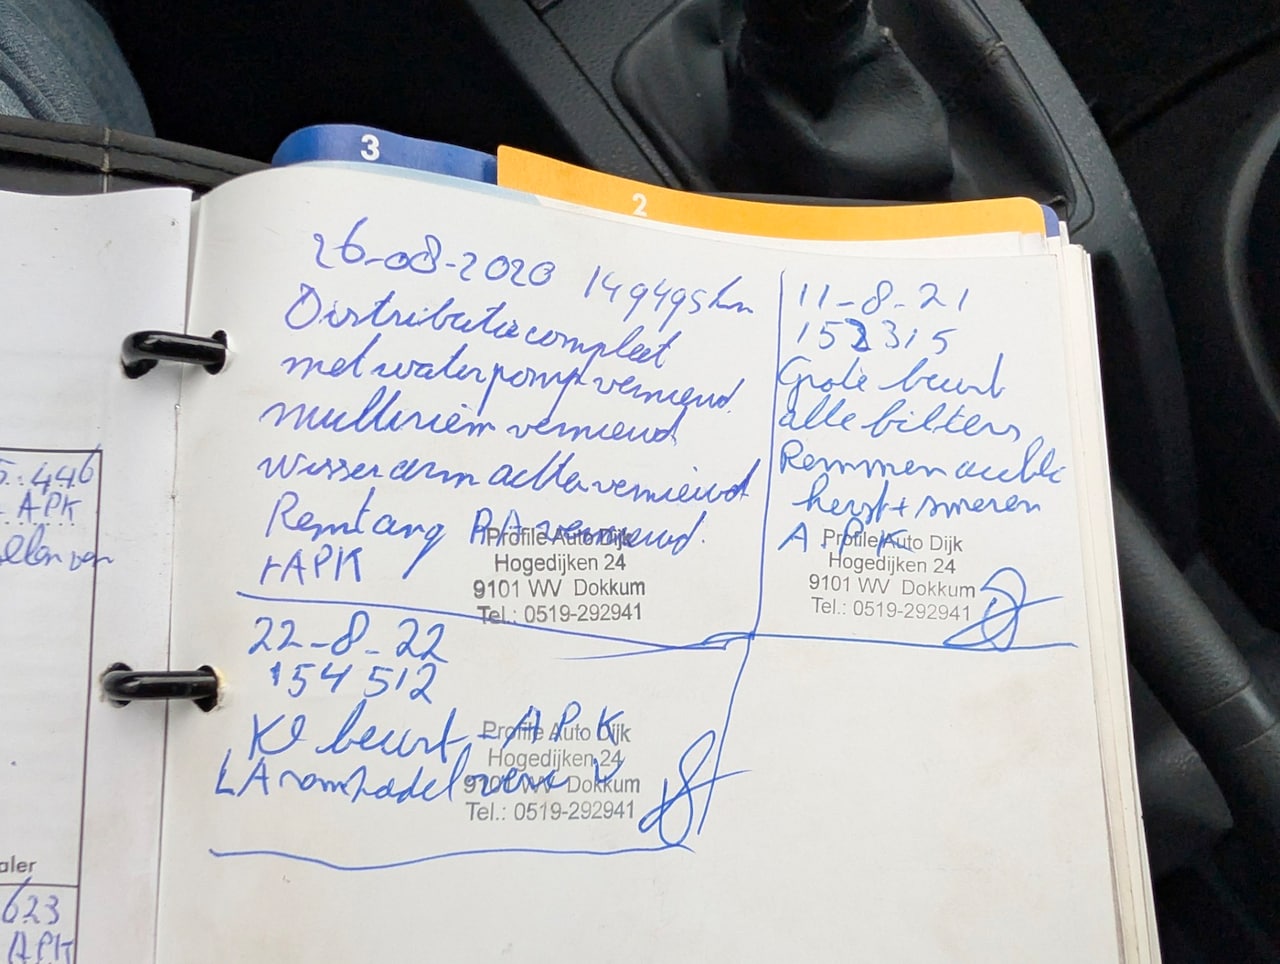 3
2
26-08-2020 149495 km
Distributie compleet
met waterpomp vernieuwd.
multiriem vernieuwd
wisserarm achter vernieuwd
Remtang RA vernieuwd.
+APK
Profile Auto Dijk
Hogedijken 24
9101 WV Dokkum
Tel.: 0519-292941
11-8-21
152315
Grote beurt
alle filters
Remmen
+ smeren
A.P.K
Profile Auto Dijk
Hogedijken 24
9101 WV Dokkum
Tel.: 0519-292941
22-8-22
154512
Kl beurt - APK
LA
Profile Auto Dijk
Hogedijken 24
9101 WV Dokkum
Tel.: 0519-292941
446
APK
aler
623
APK